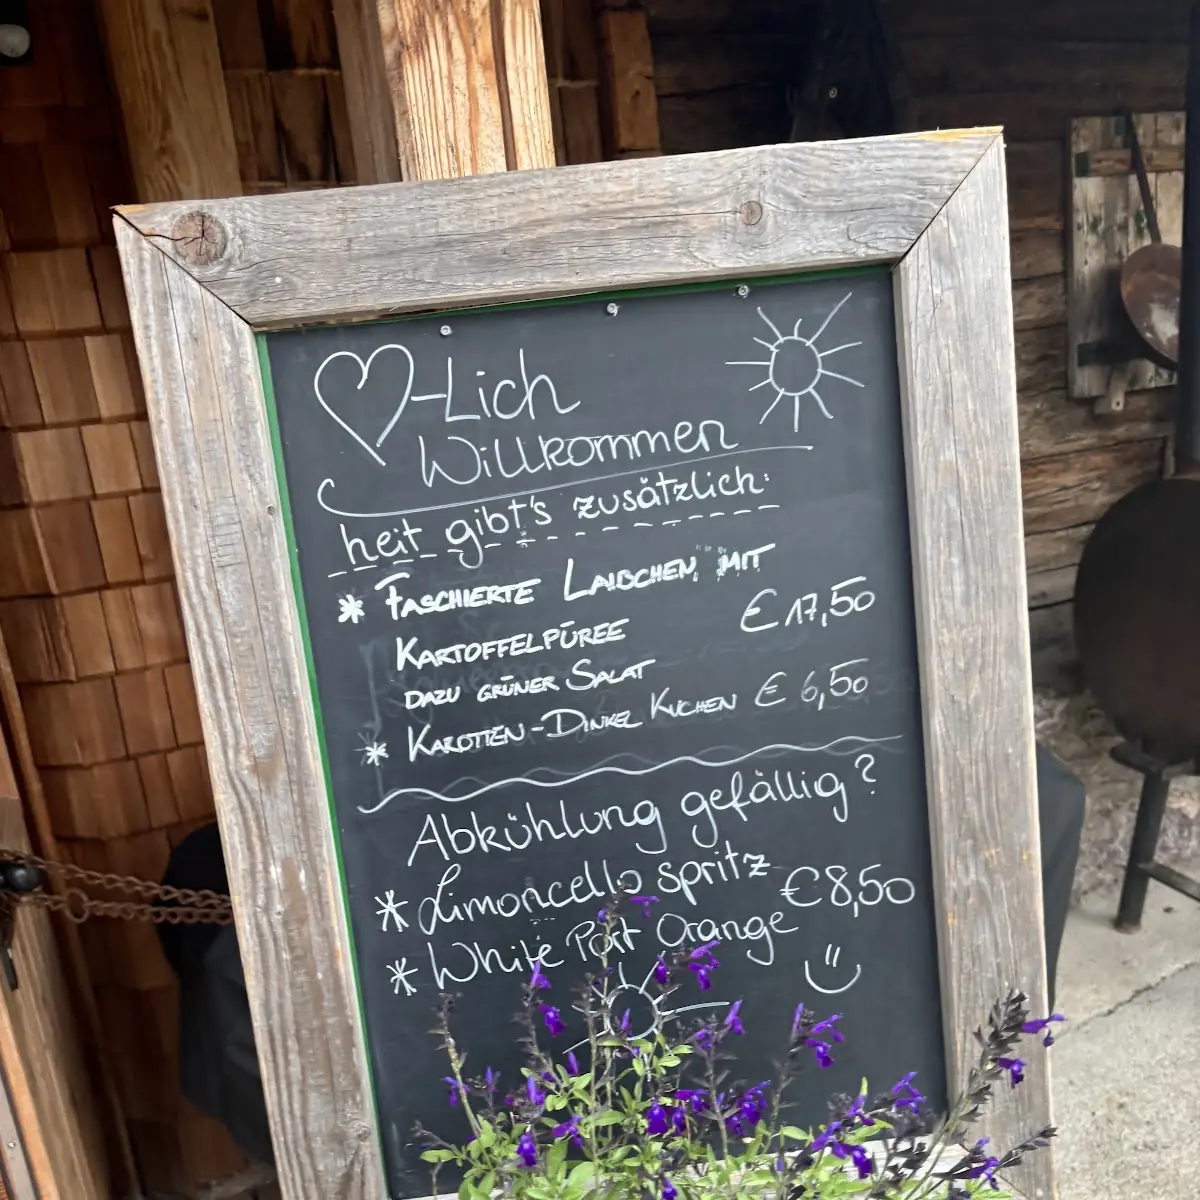 ♡-Lich
Willkommen
heit gibt's zusätzlich:
* FASCHIERTE LAIBCHEN MIT
KARTOFFELPÜREE € 17,50
DAZU GRÜNER SALAT
* KAROTTEN-DINKEL KUCHEN € 6,50
Abkühlung gefällig?
* Limoncello spritz
€ 8,50
* White Port Orange